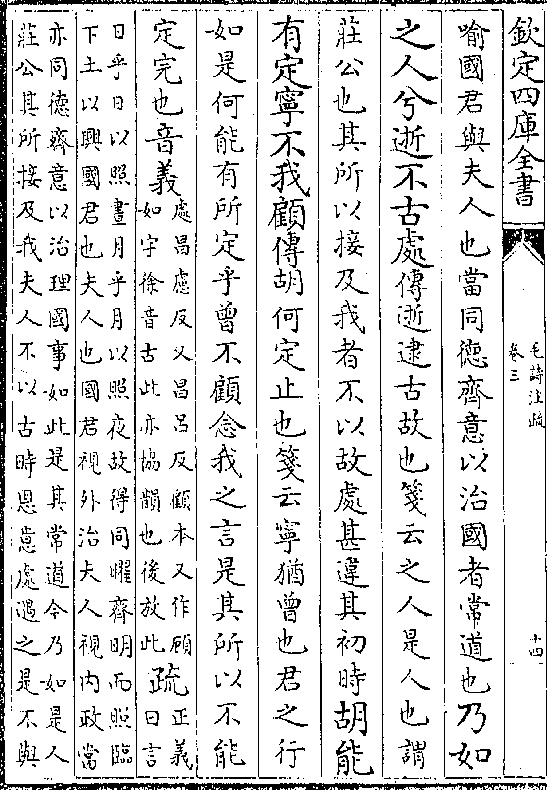 欽定四庫全書
毛詩注疏
卷三
十四
喻國君與夫人也當同德齊意以治國者常道也乃如
之人兮逝不古處傳逝逮古故也箋云之人是人也謂
莊公也其所以接及我者不以故處甚違其初時胡能
有定寧不我顧傳胡何定止也箋云寧猶曾也君之行
如是何能有所定乎曾不顧念我之言是其所以不能
定完也音義處昌慮反又昌呂反顧本又作頋
如字徐音古此亦協韻也後放此疏正義
曰言
日乎日以照晝月乎月以照夜故得同曜齊明而照臨
下土以興國君也夫人也國君視外治夫人視内政當
亦同德齊意以治理國事如此是其常道今乃如是人
莊公其所接及我夫人不以古時恩意處遇之是不與